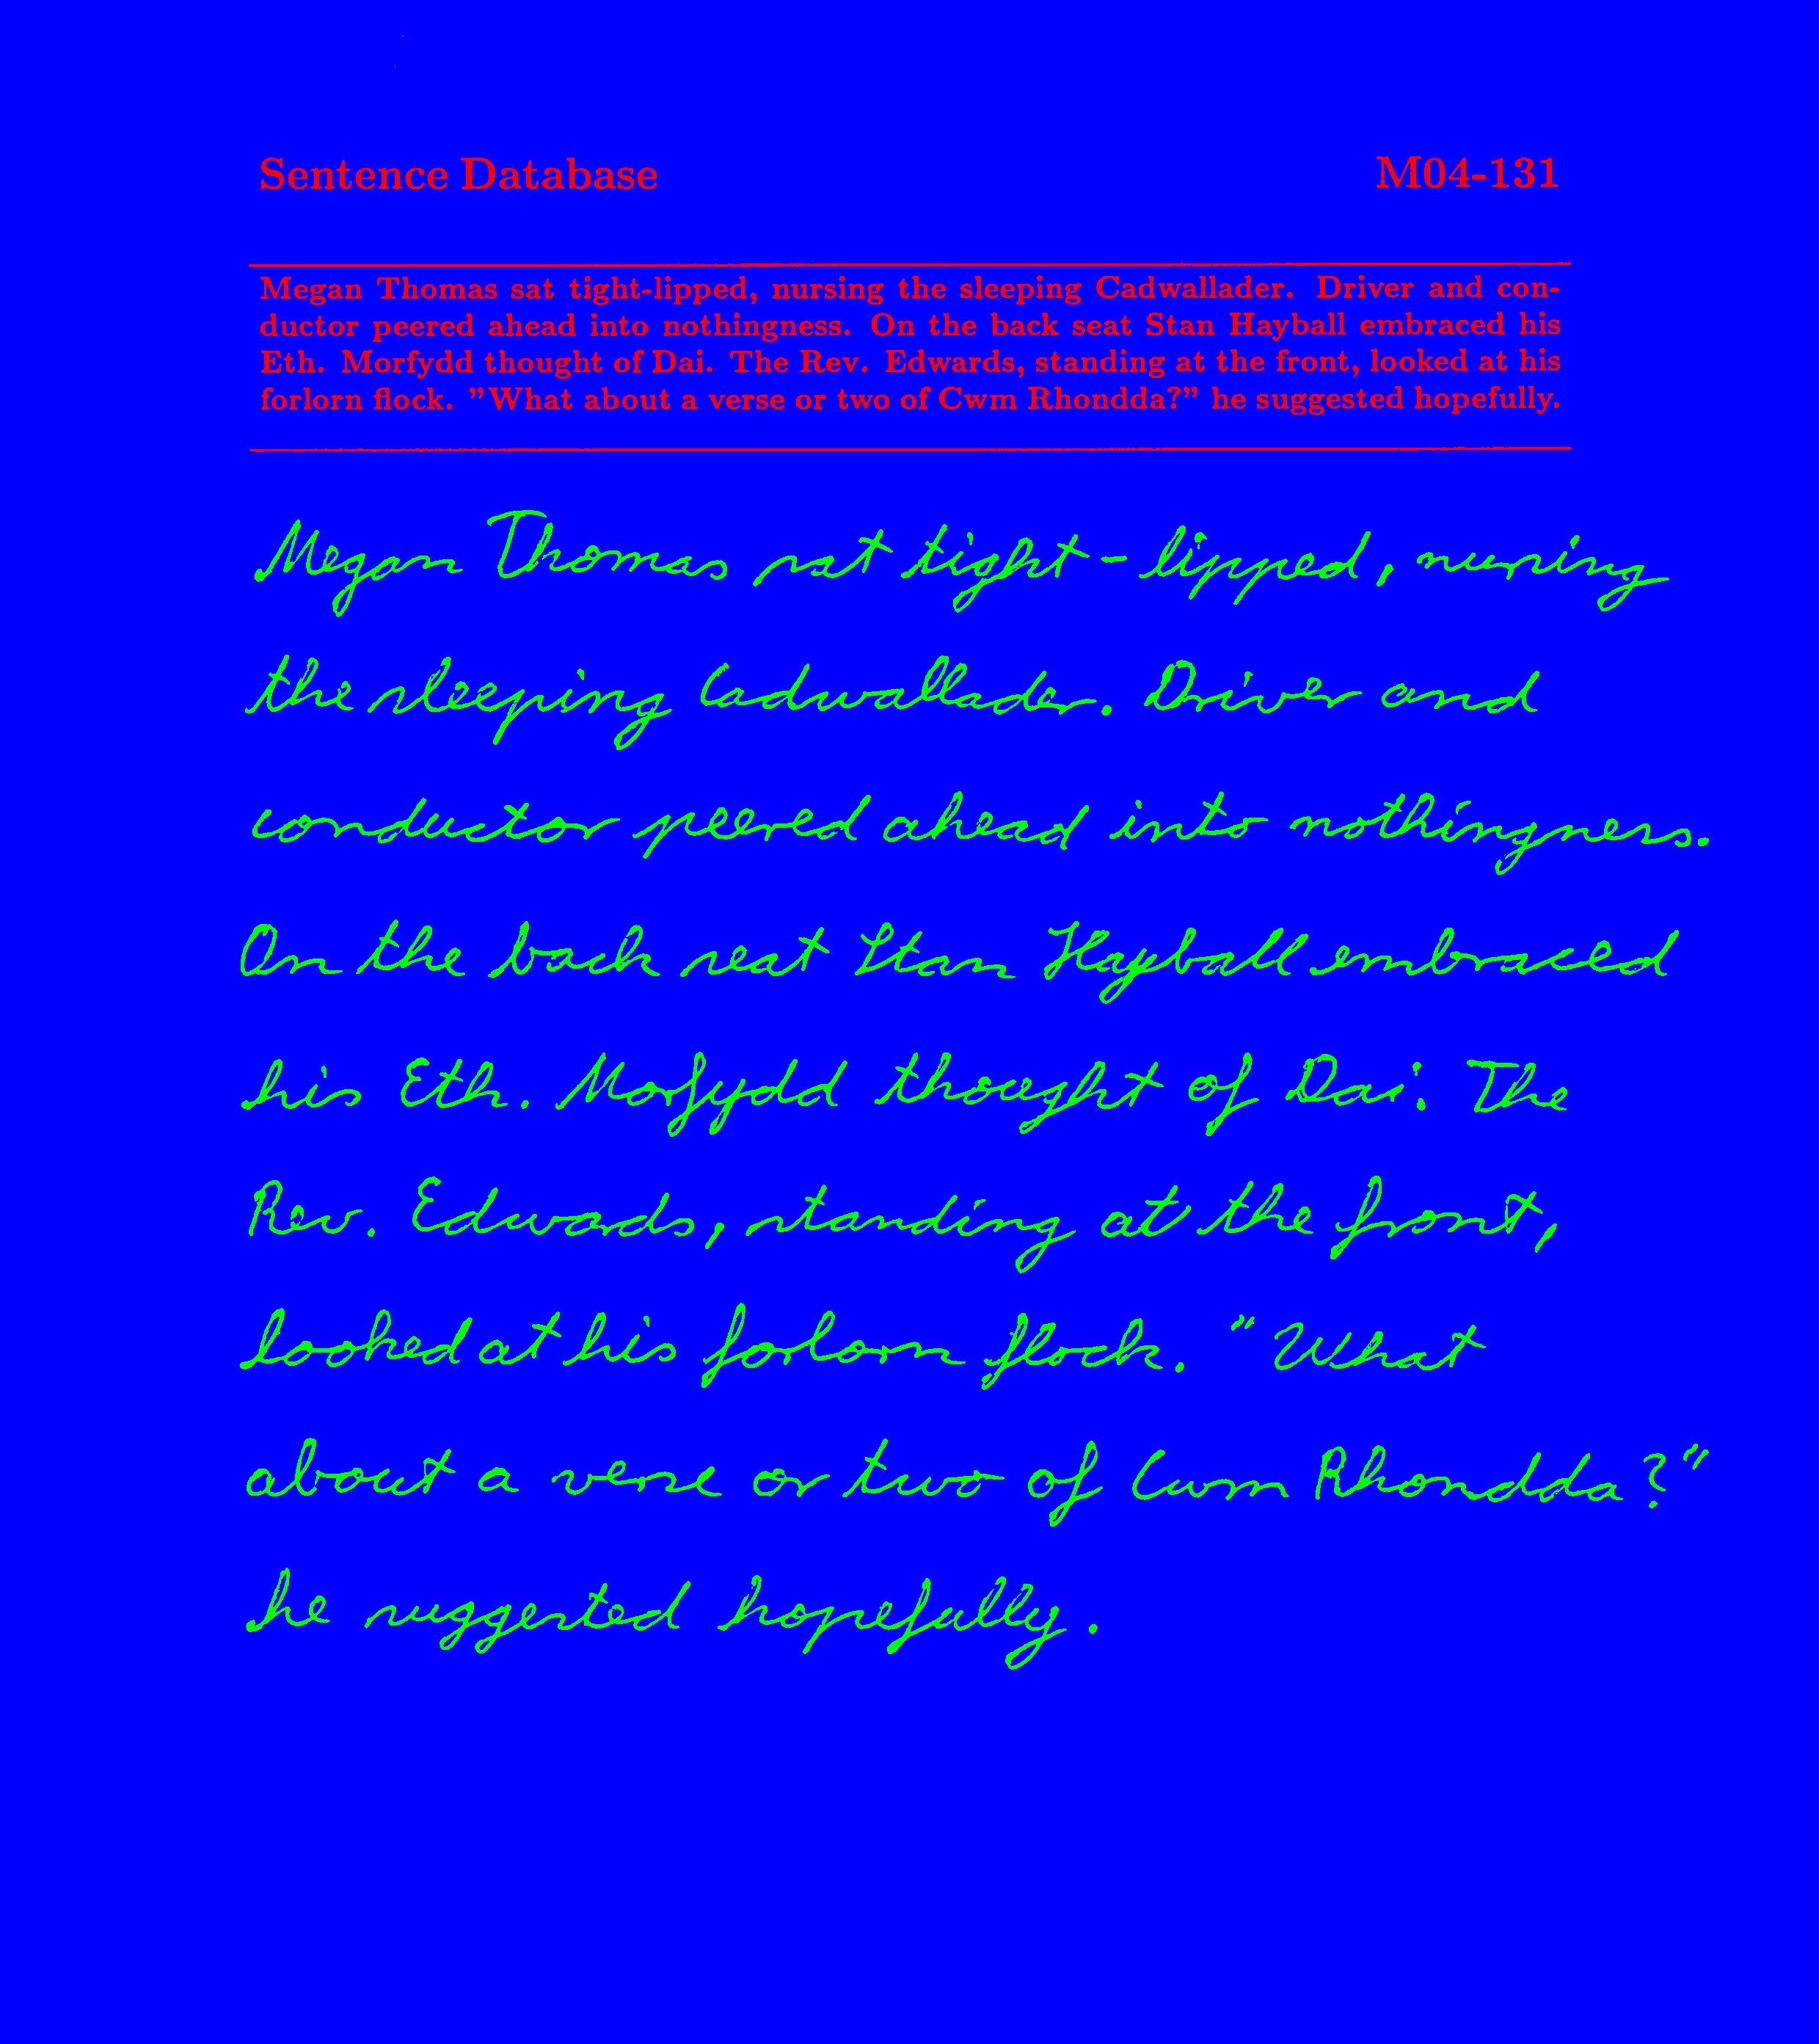 Sentence Database M04-131
Megan Thomas sat tight-lipped, nursing the sleeping Cadwallader. Driver and con-
ductor peered ahead into nothingness. On the back seat Stan Hayball embraced his
Eth. Morfydd thought of Dai. The Rev. Edwards, standing at the front, looked at his
forlorn flock. "What about a verse or two of Cwm Rhondda?" he suggested hopefully.
Megan Thomas sat tight-lipped, nursing
the sleeping Cadwallader. Driver and
conductor peered ahead into nothingness.
On the back seat Stan Hayball embraced
his Eth. Morfydd thought of Dai. The
Rev. Edwards, standing at the front,
looked at his forlorn flock. "What
about a verse or two of Cwm Rhondda?"
he suggested hopefully.